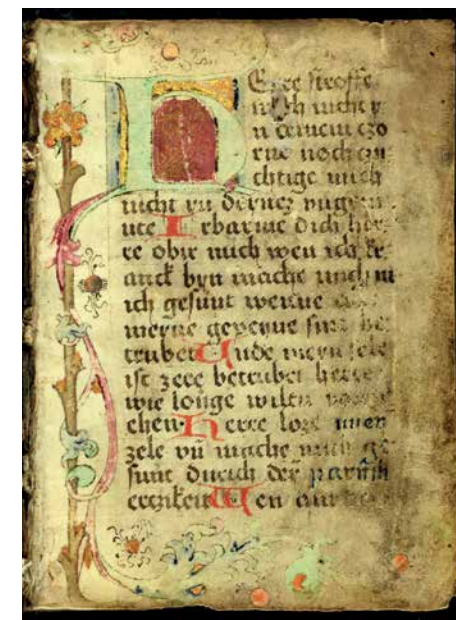 HErre stroffe
mich nicht y
n deinem czo
rne noch czu
chtige mich
nicht yn deynez vngem
ute Irbarme dich her
re obir mich wen ich kr
anck byn mache mich
ich gesunt wenne
meyne gebeyne sint be
trubet Unde meyn sele
ist zere betrubet herre
wie longe wiltu
chen Herre lose meyn
zele vn mache mich ge
sunt durch der parmh
erczikeit Wen an